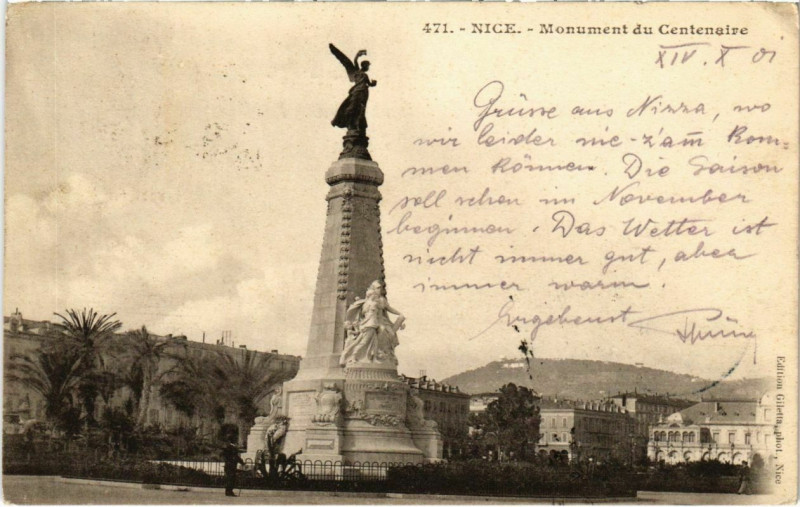 471. - NICE. - Monument du Centenaire
XIV. X 01
Grüsse aus Nizza, wo
wir leider nie z'am kom-
men können. Die Saison
soll schon im November
beginnen. Das Wetter ist
nicht immer gut, aber
immer warm.
Ergebenst
Edition Giletta, phot., Nice